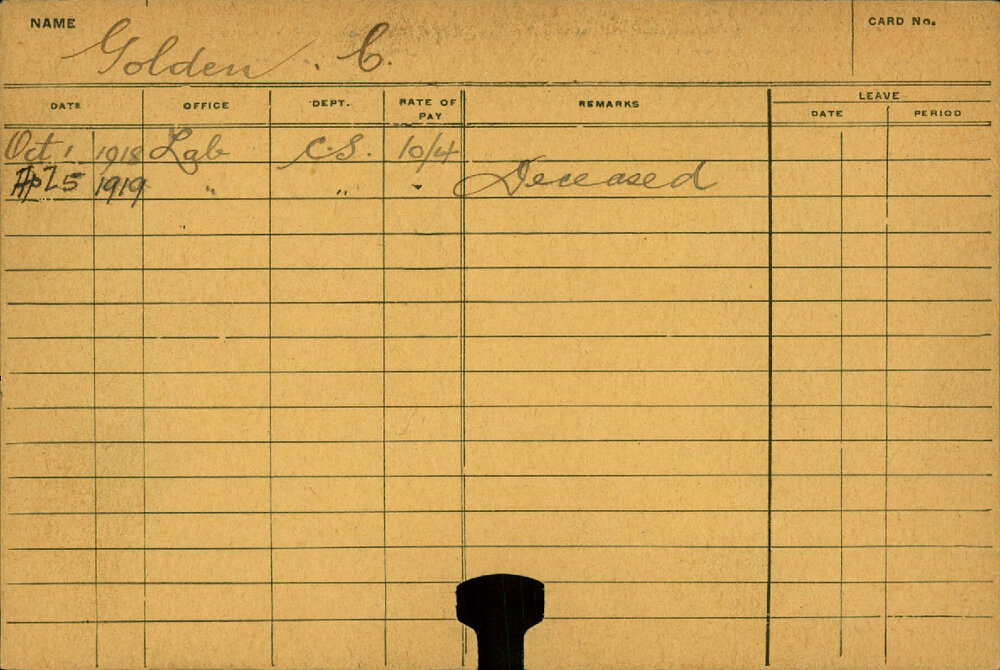 NAME Golden . C. CARD No.
DATE OFFICE DEPT. RATE OF PAY REMARKS LEAVE
DATE PERIOD
Oct 1 1918 Lab C.S. 10/4
Ap 25 1919 " " " Deceased